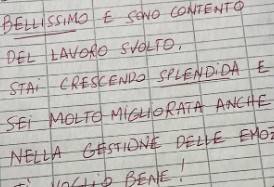 BELLISSIMO E SONO CONTENTO
DEL LAVORO SVOLTO.
STAI CRESCENDO SPLENDIDA E
SEI MOLTO MIGLIORATA ANCHE
NELLA GESTIONE DELLE EMOZ
TI VOGLIO BENE!